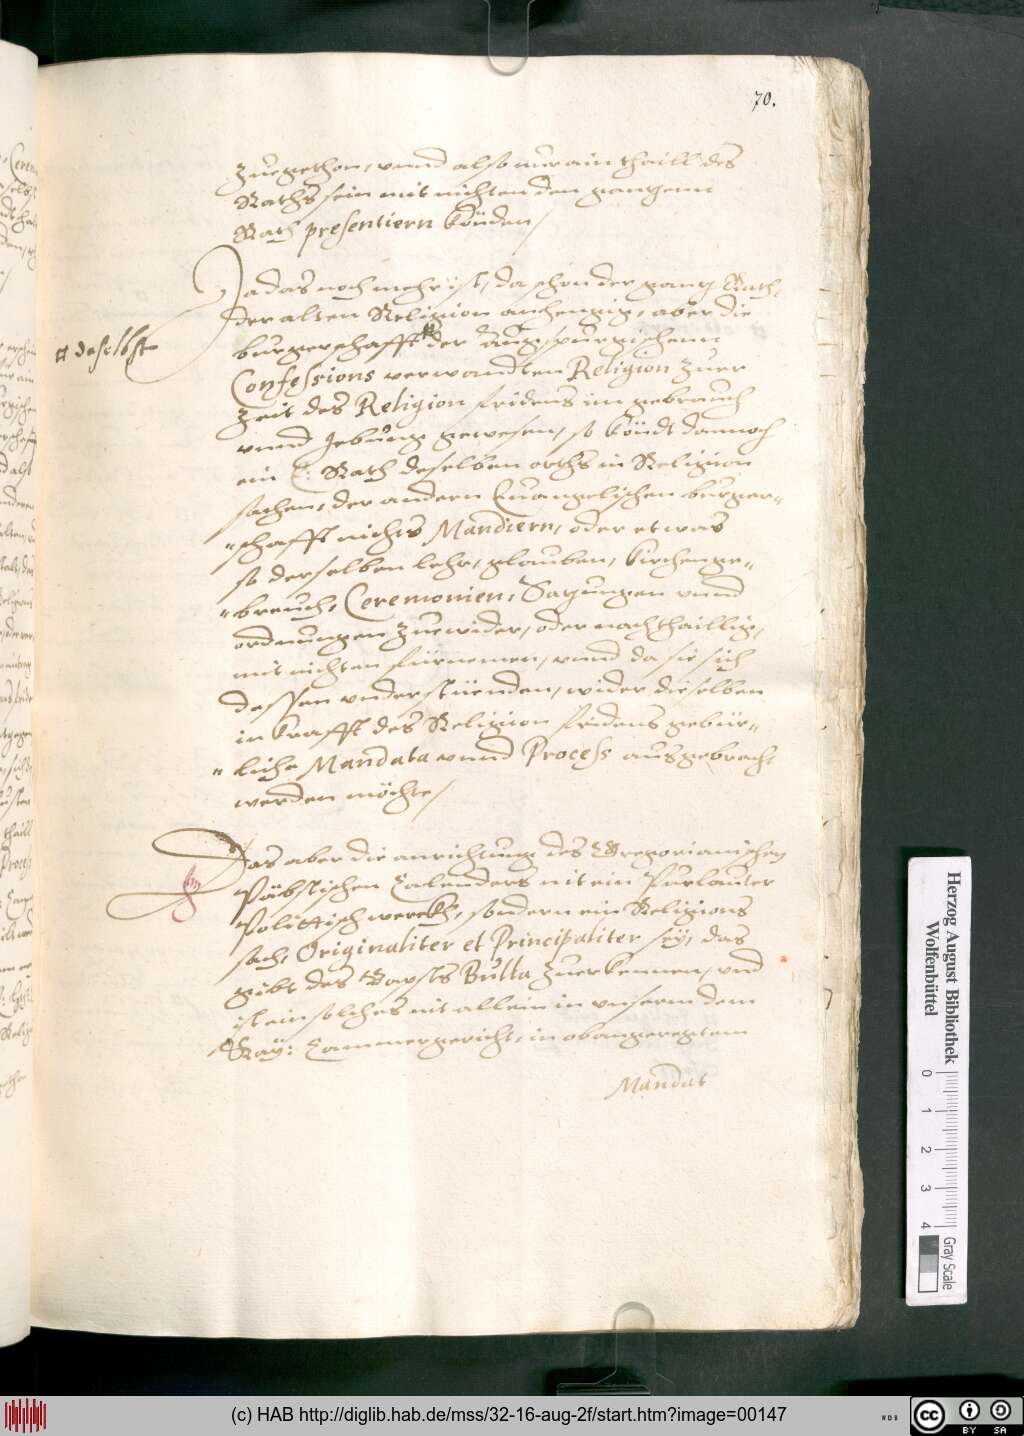 70.
Zuegethon, vnnd also nur ain thaill des
Raths sein mit nichten den gantzenn
Rath presentiern köuden /
Ja das noch mehr ist, da schon der gantz Rath,
der alten Religion anhengig, aber die
# daselbst
burgerschafft # der Augspurgischenn
Confessions verwandten Religion zuer
Zeit des Religion fridens im gebrauch
vnnd Jebung gewesen, so köndt dannoch
ein E: Rath deselben orths in Religion
sachen, der andern Euangelischen burger=
"schafft nichts Mandiern, oder etwas
so derselben lehr, glauben, Kirchenge=
"breuch, Ceremonien, Satzungen vnnd
ordnungen zuewider, oder nachthaillig,
mit nichten fürnemen, vnnd da sie sich
dessen vnderstüenden, wider dieselben
in krafft des Religion fridens gebür=
"liche Mandata vnnd Process ausgebracht
werden möchte /
Das aber die anrichtung des Gregorianischen
Päbstischen Calenders nit ein Purlauter
Polittisch werckh, sondern ein Religions
sach, Originaliter et Principaliter seÿ, das
gibt des Bapsts Bulla zuerkennen, vnd
ist ein solches nit allein in vnserm dem
Kaÿ: Cammergericht, in obangeregtem
Mandat
Herzog August Bibliothek
Wolfenbüttel
0 1 2 3 4
Gray Scale
(c) HAB http://diglib.hab.de/mss/32-16-aug-2f/start.htm?image=00147
WDB
cc BY SA